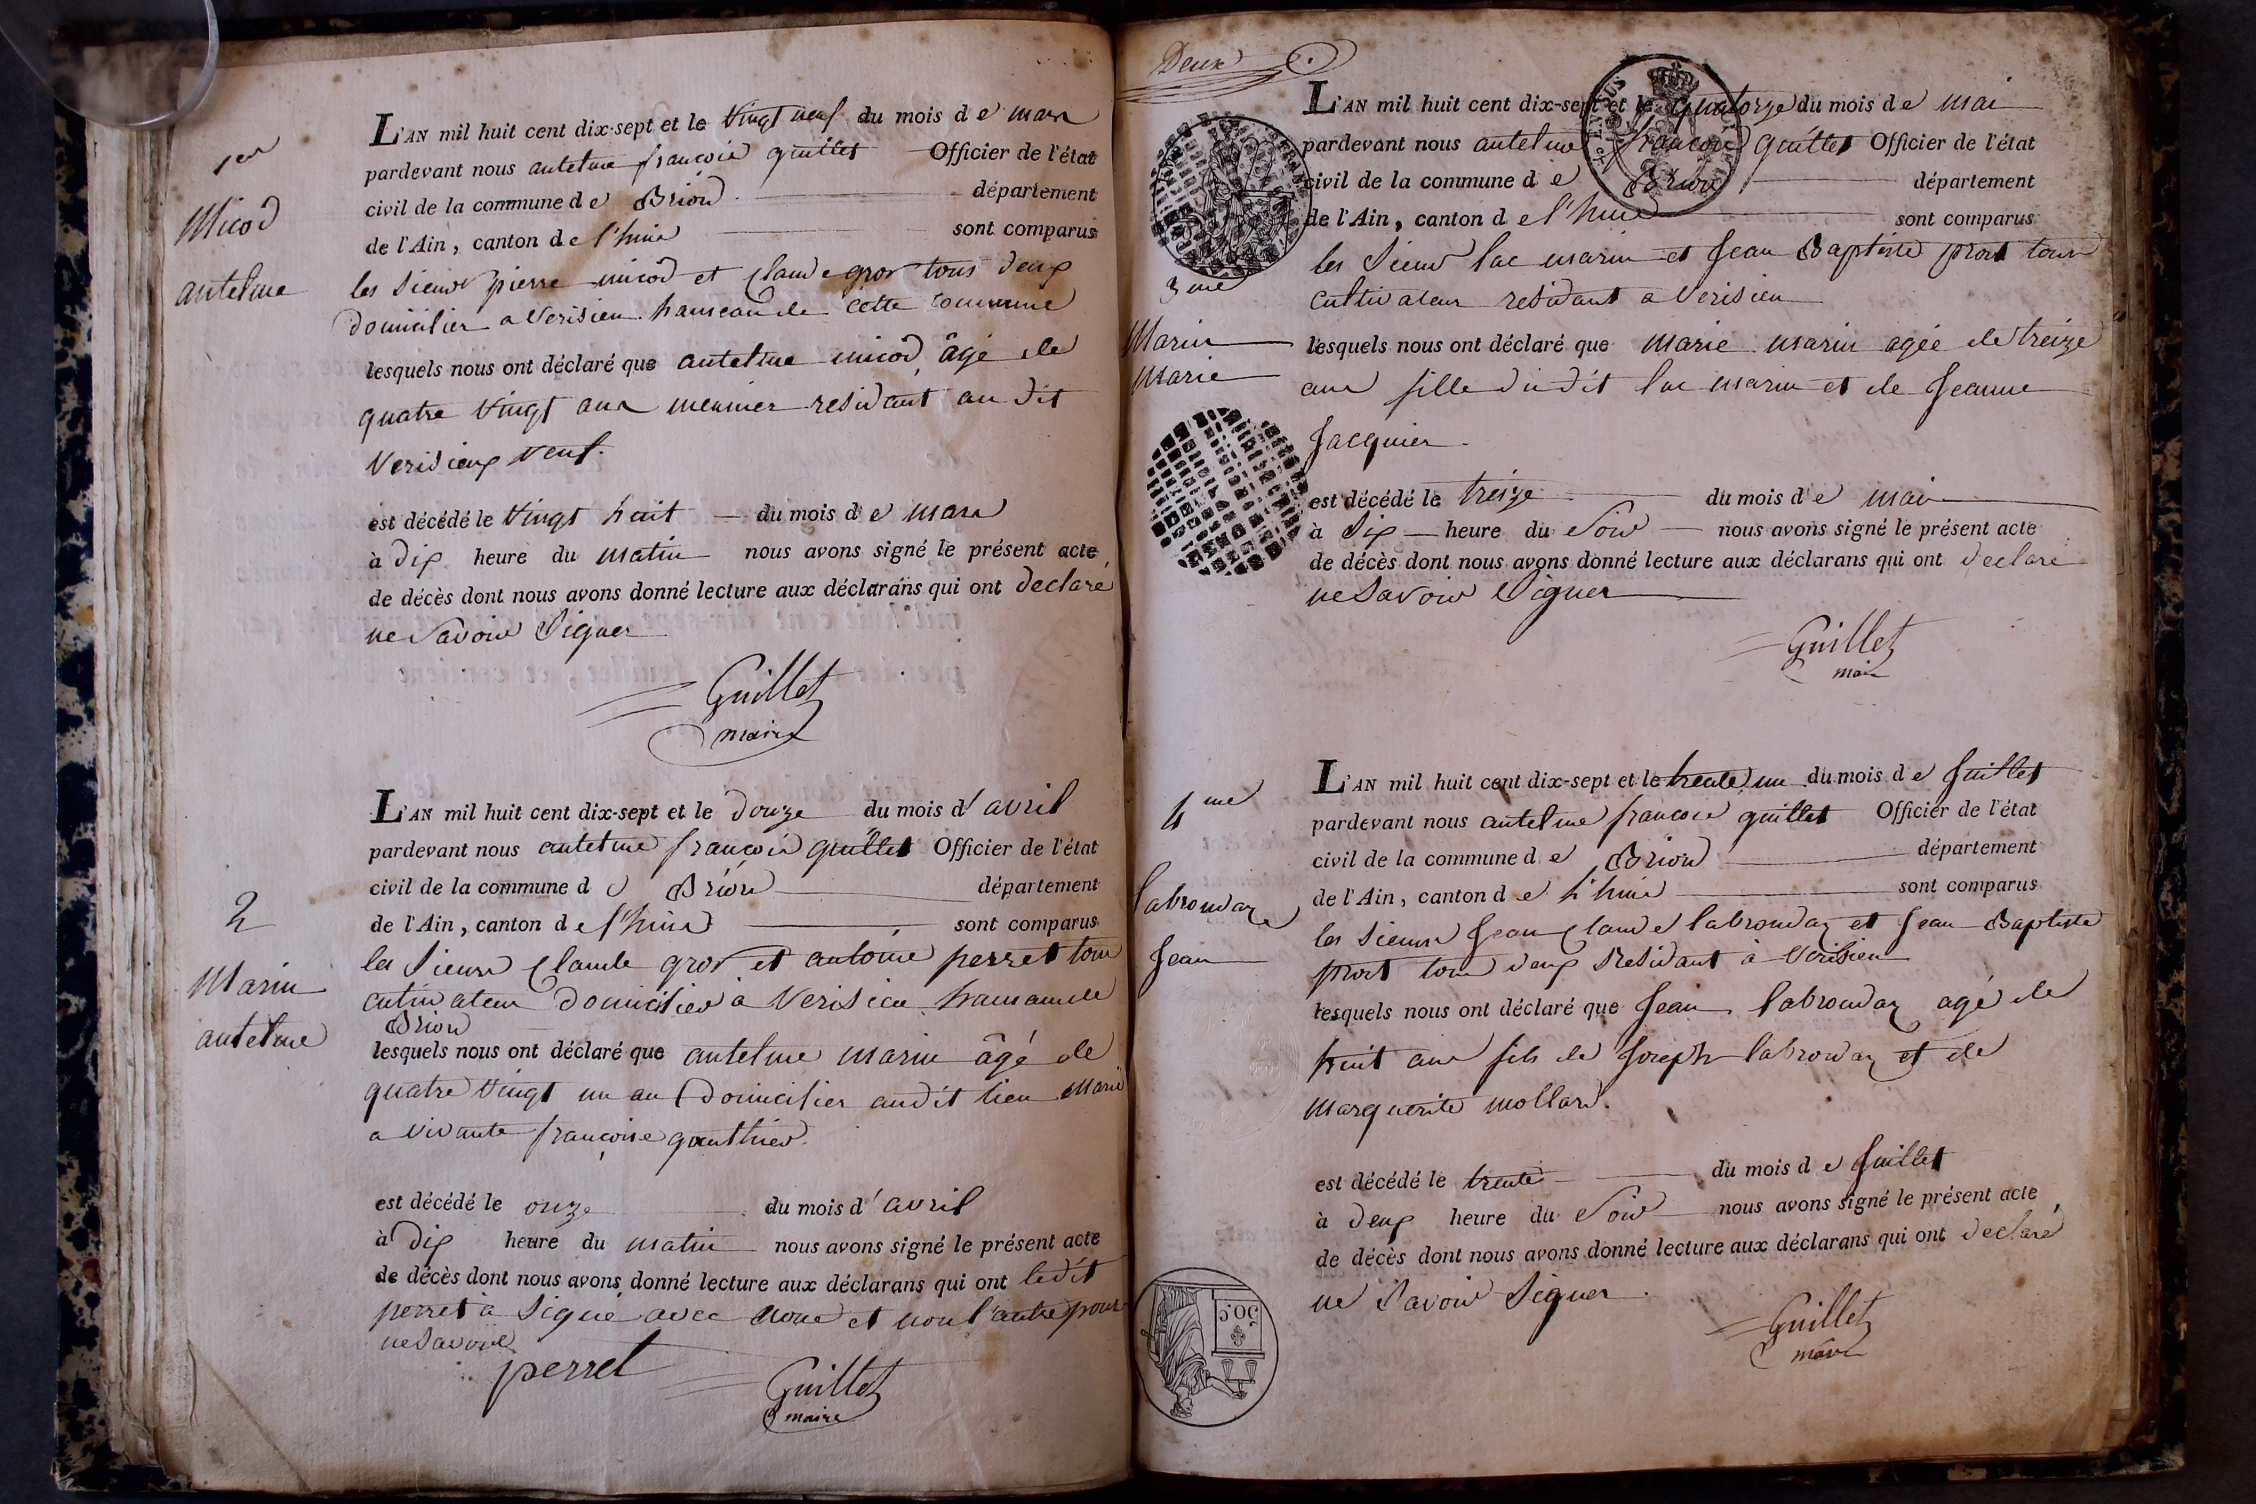 1er
Micod
antelme
L'AN mil huit cent dix-sept et le vingt neuf du mois de mars
pardevant nous antelme françois guillet Officier de l'état
civil de la commune de Brion département
de l'Ain, canton de l'huis sont comparus
les sieurs pierre micod et Claude gros tous deux
domicilier a Verisieu hameau de cette commune
lesquels nous ont déclaré que antelme micod âgé de
quatre vingt ans meunier residant au dit
Verisieux veuf.
est décédé le vingt huit du mois de mars
à dix heure du matin nous avons signé le présent acte
de décès dont nous avons donné lecture aux déclarans qui ont declaré
ne savoir signer
Guillet
maire
2
Marin
antelme
L'AN mil huit cent dix-sept et le douze du mois d'avril
pardevant nous antelme françois guillet Officier de l'état
civil de la commune de Brion département
de l'Ain, canton de l'huis sont comparus
les sieurs Claude gros et antoine perret tous
cultivateur domicilier à Verisieu hameau de
Brion
lesquels nous ont déclaré que antelme marin âgé de
quatre vingt un an domicilier audit lieu marié
a vivante françoise gauthier.
est décédé le onze du mois d'avril
à dix heure du matin nous avons signé le présent acte
de décès dont nous avons donné lecture aux déclarans qui ont ledit
perret à signé avec nous et non l'autre pour
ne savoir
perret
Guillet
maire
Deux
3me
Marin
Marie
L'AN mil huit cent dix-sept et le quatorze du mois de mai
pardevant nous antelme françois guillet Officier de l'état
civil de la commune de Brion département
de l'Ain, canton de l'huis sont comparus
les sieurs luc marin et Jean Baptiste prost tous
cultivateur residant a Verisieu
lesquels nous ont déclaré que marie marin agée de treize
ans fille du dit luc marin et de Jeanne
Jacquier.
est décédé le treize du mois de mai
à six heure du soir nous avons signé le présent acte
de décès dont nous avons donné lecture aux déclarans qui ont declaré
ne savoir signer
Guillet
maire
4me
labrouday
Jean
L'AN mil huit cent dix-sept et le trente un du mois de Juillet
pardevant nous antelme françois guillet Officier de l'état
civil de la commune de Brion département
de l'Ain, canton de l'huis sont comparus
les sieurs Jean Claude labrouday et Jean Baptiste
prost tous deux residant à Verisieu
lesquels nous ont déclaré que Jean labrouday agé de
huit ans fils de Joseph labrouday et de
marguerite mollard.
est décédé le trente du mois de Juillet
à deux heure du soir nous avons signé le présent acte
de décès dont nous avons donné lecture aux déclarans qui ont declaré
ne savoir signer.
Guillet
maire
50 C